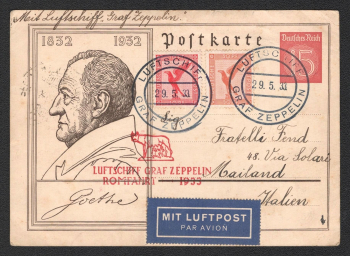 Mit Luftschiff „Graf Zeppelin"
1832 1932
Postkarte
Deutsches Reich
15
LUFTSCHIFF
29.5.33
GRAF ZEPPELIN
LUFTSCHIFF
29.5.33
GRAF ZEPPELIN
Fratelli Fend
48. Via Solari
Mailand
Italien
LUFTSCHIFF GRAF ZEPPELIN
ROMFAHRT 1933
Goethe
MIT LUFTPOST
PAR AVION